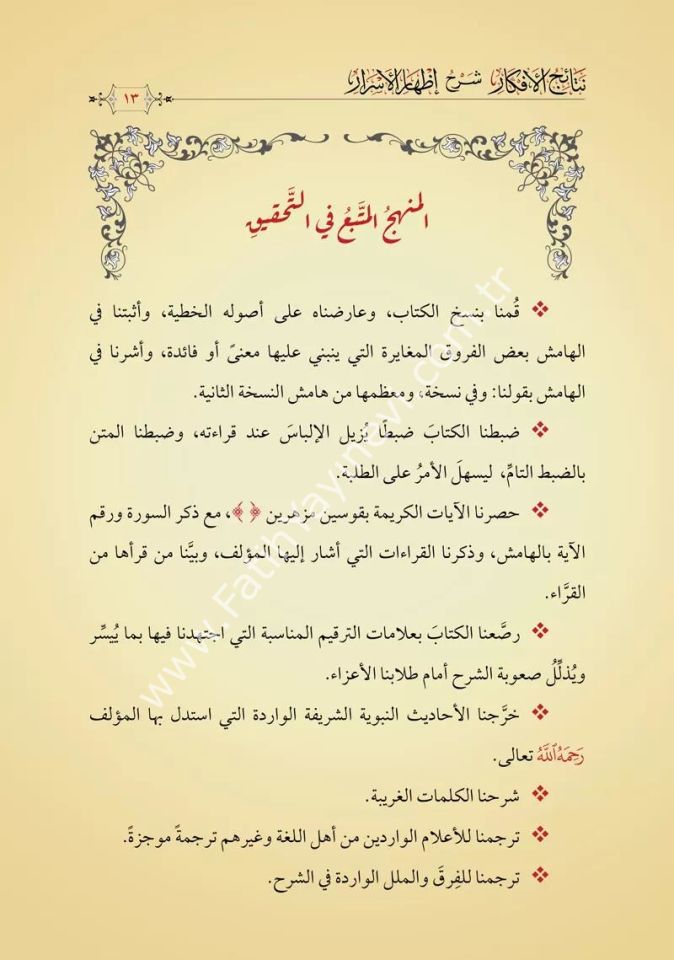 نتائج الأفكار شرح إظهار الأسرار
١٣
المنهجُ المتَّبعُ في التَّحقيقِ
❖ قُمنا بنسخ الكتاب، وعارضناه على أصوله الخطية، وأثبتنا في
الهامش بعض الفروق المغايرة التي ينبني عليها معنىً أو فائدة، وأشرنا في
الهامش بقولنا: وفي نسخة، ومعظمها من هامش النسخة الثانية.
❖ ضبطنا الكتابَ ضبطًا يُزيل الإلباسَ عند قراءته، وضبطنا المتن
بالضبط التامِّ، ليسهلَ الأمرُ على الطلبة.
❖ حصرنا الآيات الكريمة بقوسين مزهرين ﴿ ﴾، مع ذكر السورة ورقم
الآية بالهامش، وذكرنا القراءات التي أشار إليها المؤلف، وبيَّنا من قرأها من
القرَّاء.
❖ رصَّعنا الكتابَ بعلامات الترقيم المناسبة التي اجتهدنا فيها بما يُيسِّر
ويُذلِّلُ صعوبة الشرح أمام طلابنا الأعزاء.
❖ خرَّجنا الأحاديث النبوية الشريفة الواردة التي استدل بها المؤلف
رَحِمَهُ ٱللَّهُ تعالى.
❖ شرحنا الكلمات الغريبة.
❖ ترجمنا للأعلام الواردين من أهل اللغة وغيرهم ترجمةً موجزةً.
❖ ترجمنا للفِرقَ والملل الواردة في الشرح.
www.FatihYayinevi.com.tr